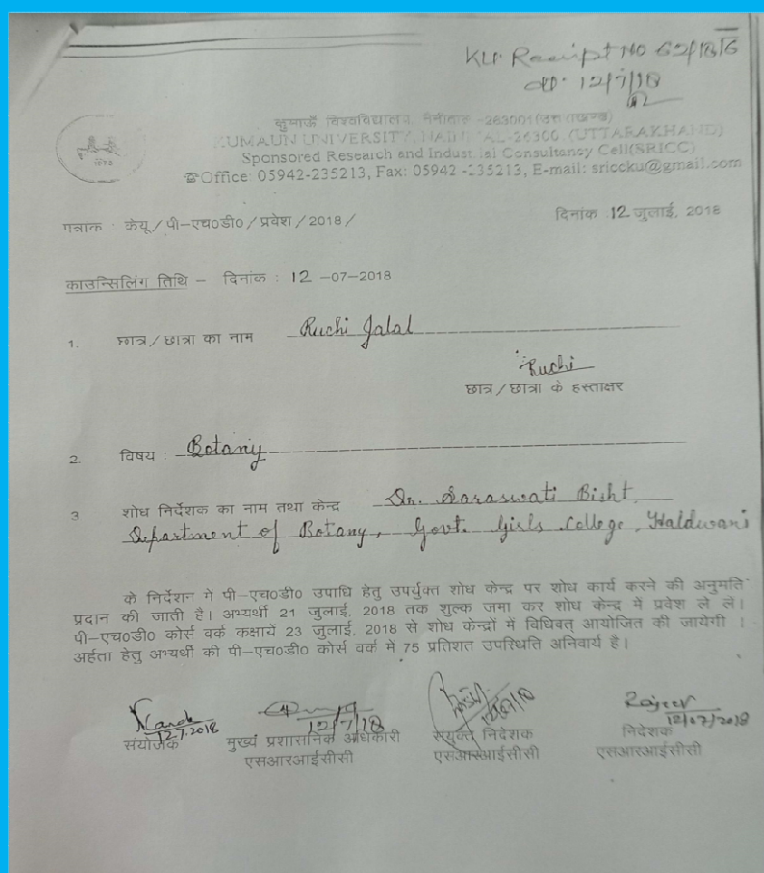 KU. Receipt NO 62/1816
dt. 12/7/18
कुमाऊँ विश्वविद्यालय, नैनीताल -263001 (उत्तराखण्ड)
KUMAUN UNIVERSITY, NAINITAL-26300 (UTTARAKHAND)
Sponsored Research and Industrial Consultancy Cell(SRICC)
☎Office: 05942-235213, Fax: 05942 -235213, E-mail: sriccku@gmail.com
पत्रांक : केयू/पी-एच0डी0/प्रवेश/2018/
दिनांक 12 जुलाई, 2018
काउन्सिलिंग तिथि - दिनांक : 12 -07-2018
1. छात्र/छात्रा का नाम Ruchi Jalal
Ruchi
छात्र/छात्रा के हस्ताक्षर
2 विषय : Botany
3 शोध निर्देशक का नाम तथा केन्द्र Dr. Saraswati Bisht,
Department of Botany, Govt. Girls College, Haldwani
के निर्देशन में पी-एच0डी0 उपाधि हेतु उपर्युक्त शोध केन्द्र पर शोध कार्य करने की अनुमति
प्रदान की जाती है। अभ्यर्थी 21 जुलाई, 2018 तक शुल्क जमा कर शोध केन्द्र में प्रवेश ले लें।
पी-एच0डी0 कोर्स वर्क कक्षायें 23 जुलाई, 2018 से शोध केन्द्रों में विधिवत् आयोजित की जायेगी ।
अर्हता हेतु अभ्यर्थी को पी-एच0डी0 कोर्स वर्क में 75 प्रतिशत उपस्थिति अनिवार्य है।
12.7.2018
12/7/18
Rajeev
12/07/2018
संयोजक
मुख्य प्रशासनिक अधिकारी
संयुक्त निदेशक
निदेशक
एसआरआईसीसी
एसआरआईसीसी
एसआरआईसीसी